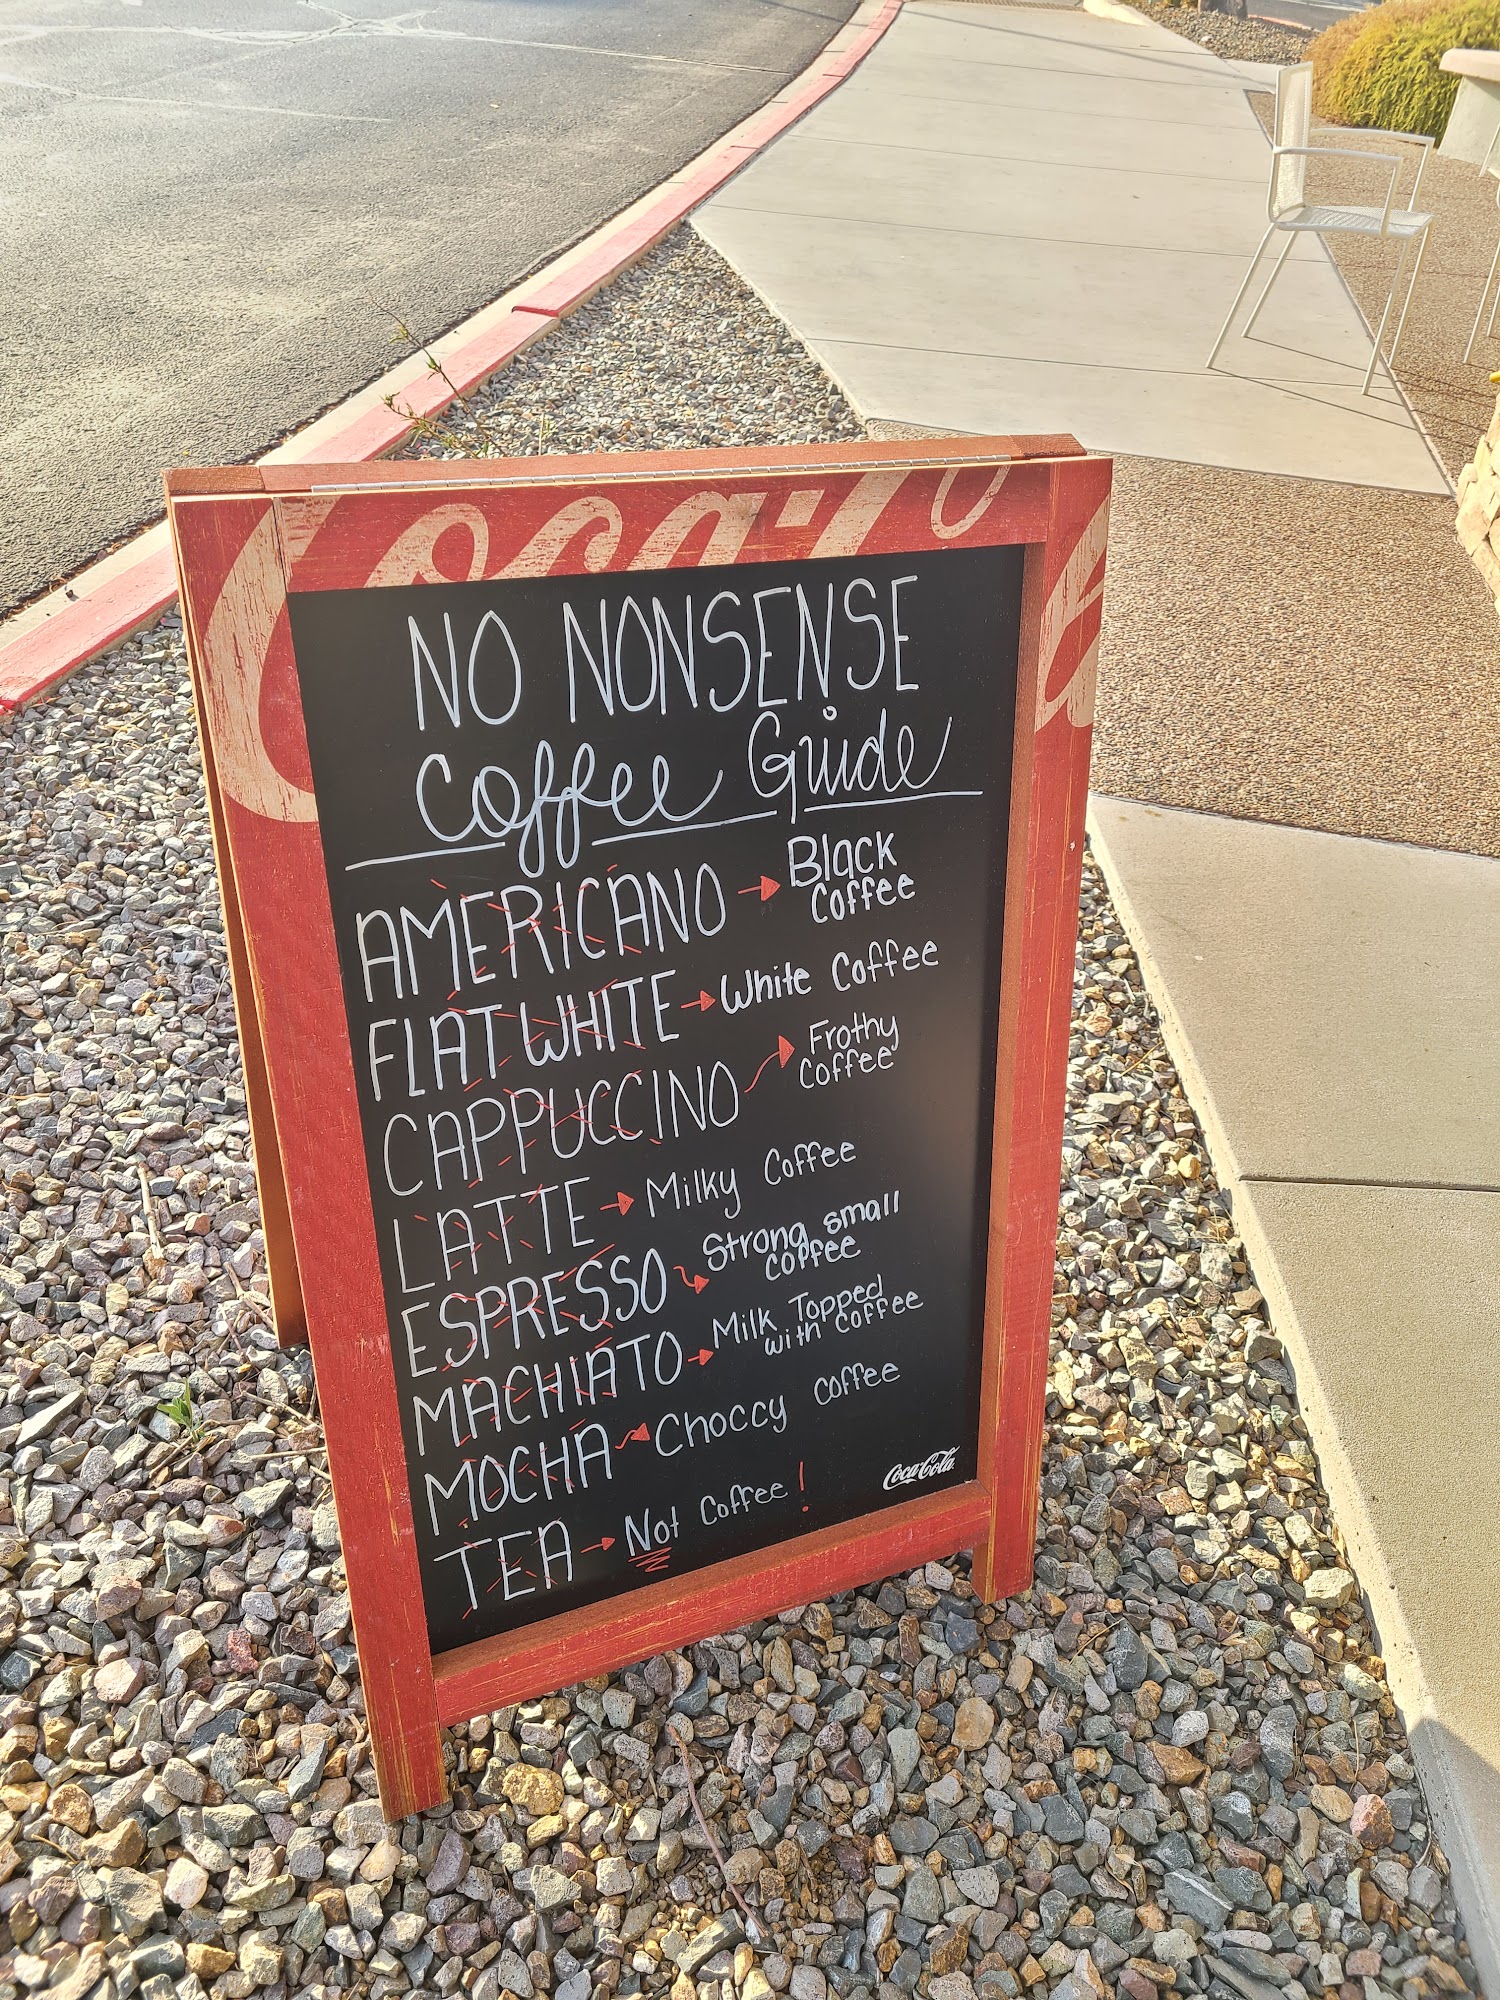 Coca-Cola
NO NONSENSE
Coffee Guide
AMERICANO → Black
Coffee
FLAT WHITE → White Coffee
CAPPUCCINO → Frothy
Coffee
LATTE → Milky Coffee
ESPRESSO → Strong small
Coffee
MACHIATO → Milk Topped
with coffee
MOCHA → Choccy coffee
TEA → Not Coffee!
Coca-Cola